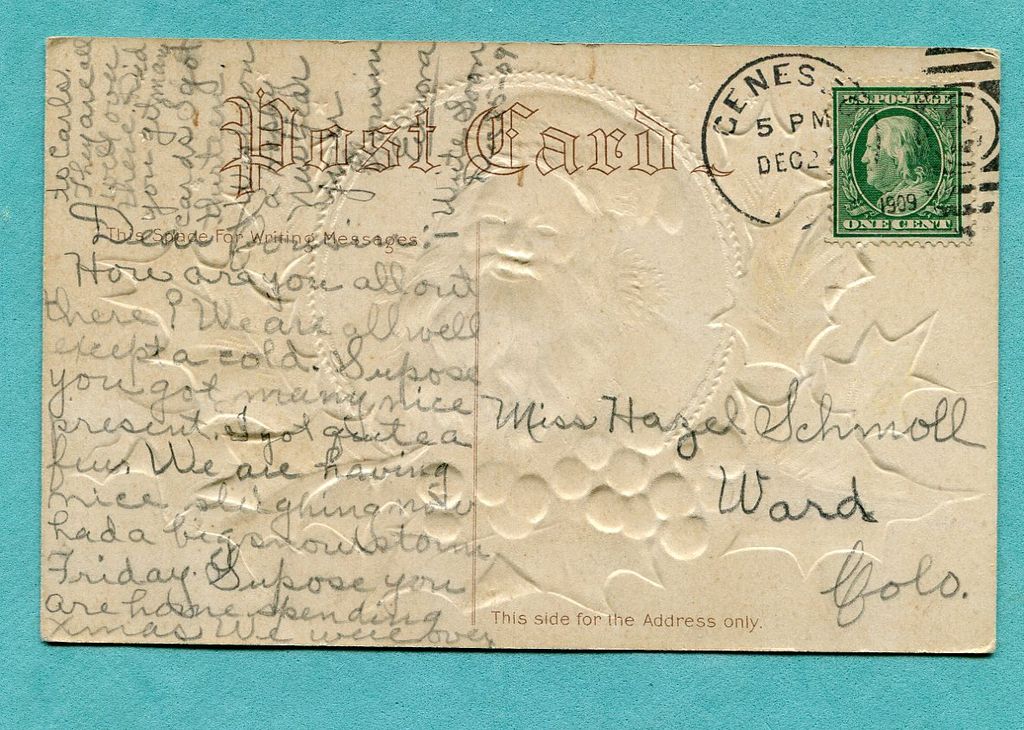 Post Card
GENES
5 PM
DEC 2
1909
U.S. POSTAGE
ONE CENT
This Space For Writing Messages
Dear
How are you all out
there? We are all well
except a cold. Supose
you got many nice
present. I got quite a
few. We are having
nice sleighing now
had a big snowstorm
Friday. Supose you
are home spending
Xmas We were over
to Carls.
They are all
over
there. Did
you get my
cards I got
Write Soon
Miss Hazel Schmoll
Ward
Colo.
This side for the Address only.